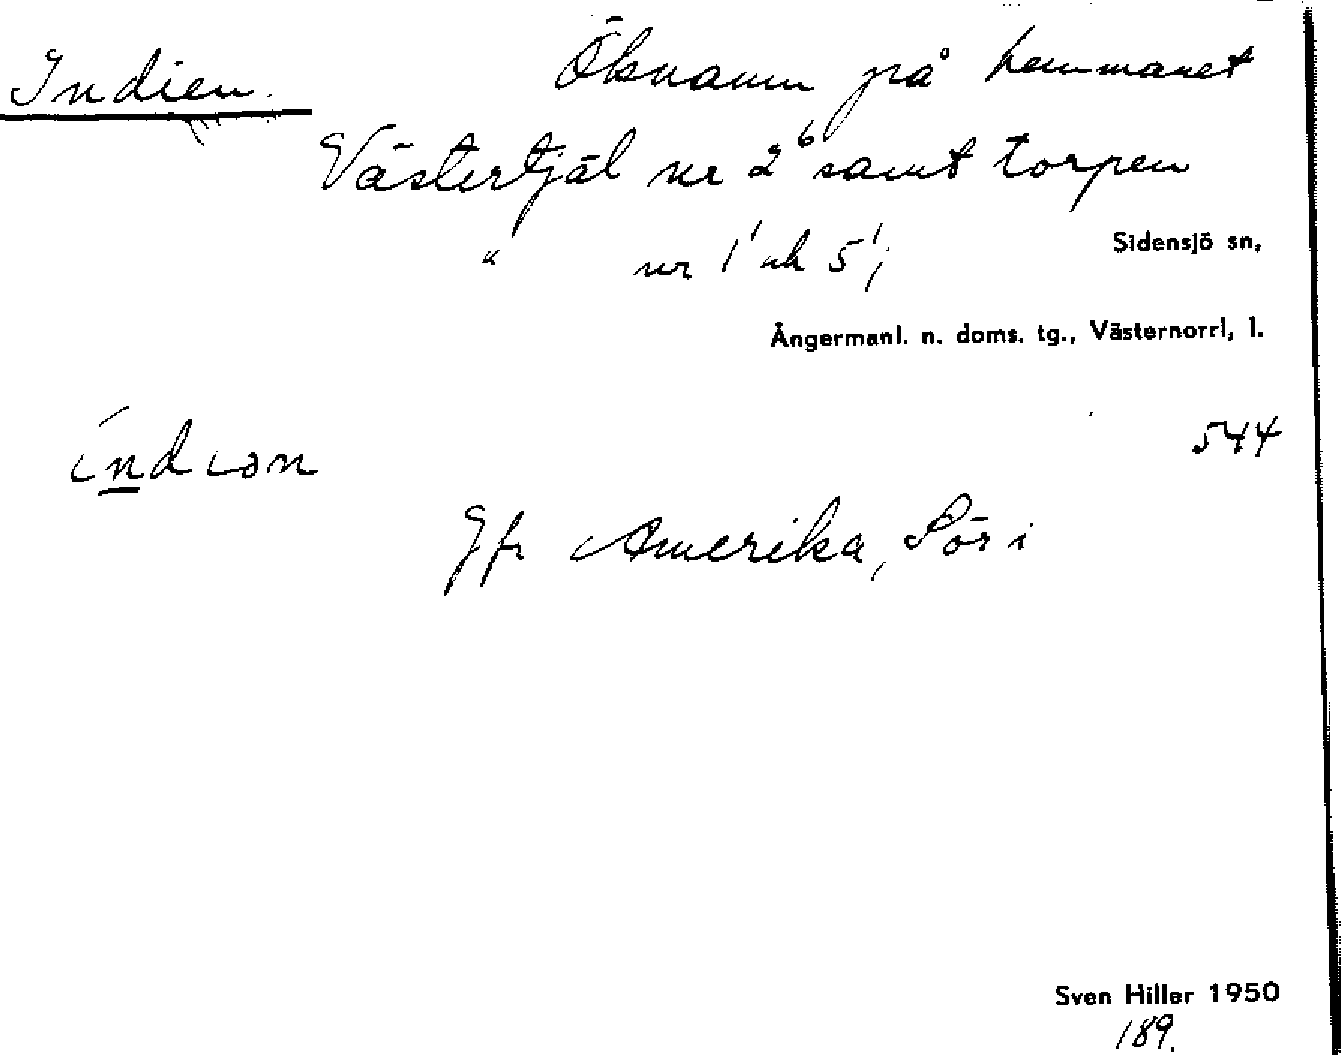 Indien. Öknamn på hemmanet
Västertjäl nr 2⁶ samt torpen
" nr 1¹ och 5¹;
Sidensjö sn,
Ångermanl. n. doms. tg., Västernorrl, l.
índιən
544
Jfr Amerika, Sör i
Sven Hiller 1950
189.